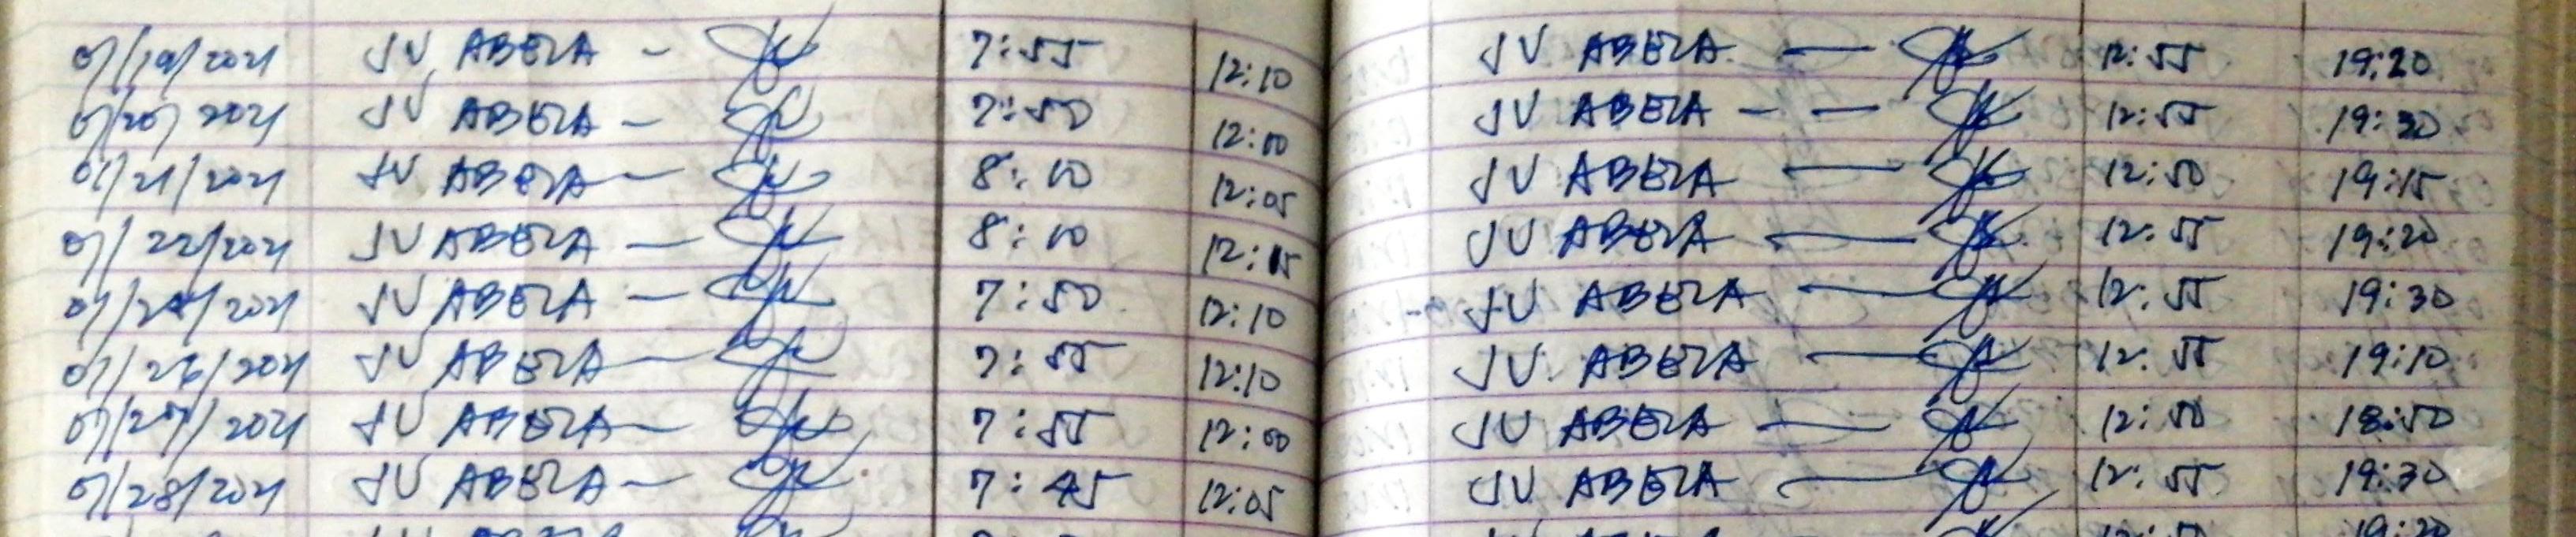 07/19/2021 JV ABELA - 7:55 12:10 JV ABELA - 12:55 19:20
07/20/2021 JV ABELA - 7:50 12:00 JV ABELA - - 12:55 19:30
07/21/2021 JV ABELA - 8:10 12:05 JV ABELA - 12:50 19:15
07/22/2021 JV ABELA - 8:10 12:15 JV ABELA - 12:55 19:20
07/24/2021 JV ABELA - 7:50 12:10 JV ABELA - 12:55 19:30
07/26/2021 JV ABELA - 7:55 12:10 JV ABELA - 12:55 19:10
07/27/2021 JV ABELA - 7:55 12:00 JV ABELA - 12:50 18:50
07/28/2021 JV ABELA - 7:45 12:05 JV ABELA - 12:55 19:30